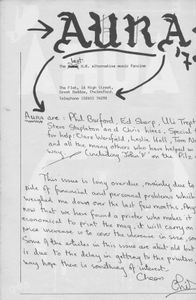 AURA '79
best
The N.E. Alternative music fanzine
The Flat, 14 High Street,
Great Baddow, Chelmsford
Telephone
Aura are: Phil Burford, Ed Sharp, Uli Trept
Steve Stapleton and Chris Hikes. Special
for help: Clare Wansford, Leslie Hall, Tom N
and all the many others who have helped us
way (including 'John V' on the Pike
This issue is long overdue, mainly due to
pile of financial and personal problems which
weighed me down over the last few months. Any
now that we have found a printer who makes it
economical to print the mag, it will carry on
price increase is to over the increase in size
Some of the articles in this issue are abit old but
is due to the delay in getting to the printers
way hope there is something of interest.
Cheers
Phil